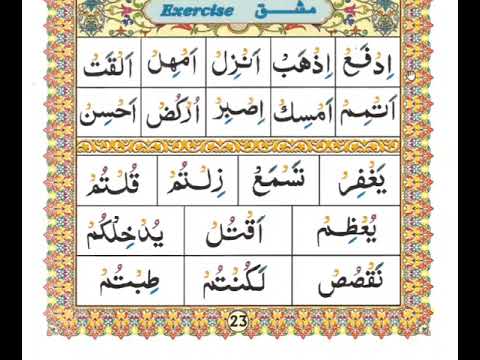 مشق Exercise
اِدْفَعْ اِذْهَبْ اَنْزِلْ اَمْهِلْ اَلْقَتْ
اَتْمِمْ اَمْسِكْ اِصْبِرْ اُرْكُضْ اَحْسِنْ
يَغْفِرْ تَسْمَعْ زِلْتُمْ قُلْتُمْ
يُعْظِمْ اَقْتُلْ يُدْخِلْكُمْ
نَقْصُصْ لَكُنْتُمْ طِبْتُمْ
23